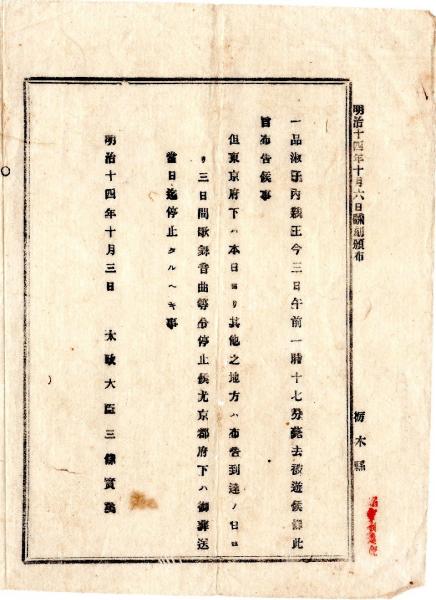 明治十四年十月六日飜刻頒布
栃木縣
一品淑子内親王今三日午前一時十七分薨去被遊候條此
旨布告候事
但東京府下ハ本日ヨリ其他之地方ハ布告到達ノ日ヨ
リ三日間歌舞音曲等令停止候尤京都府下ハ御葬送
當日迄停止タルヘキ事
明治十四年十月三日
太政大臣三條實美